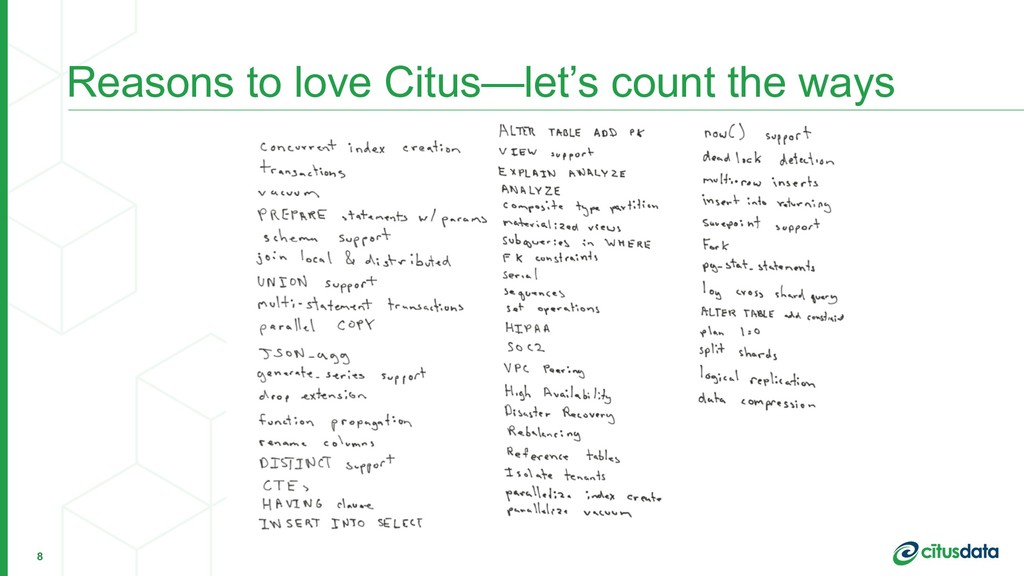 Reasons to love Citus—let's count the ways
concurrent index creation
transactions
vacuum
PREPARE statements w/ params
schema support
join local & distributed
UNION support
multi-statement transactions
parallel COPY
JSON_agg
generate_series support
drop extension
function propagation
rename columns
DISTINCT support
CTEs
HAVING clause
INSERT INTO SELECT
ALTER TABLE ADD PK
VIEW support
EXPLAIN ANALYZE
ANALYZE
composite type partition
materialized views
subqueries in WHERE
FK constraints
serial
sequences
set operations
HIPAA
SOC2
VPC Peering
High Availability
Disaster Recovery
Rebalancing
Reference tables
Isolate tenants
parallelize index create
parallelize vacuum
now() support
deadlock detection
multi-row inserts
insert into returning
savepoint support
Fork
pg_stat_statements
log cross shard query
ALTER TABLE add constraint
plan
split shards
logical replication
data compression
8
citusdata